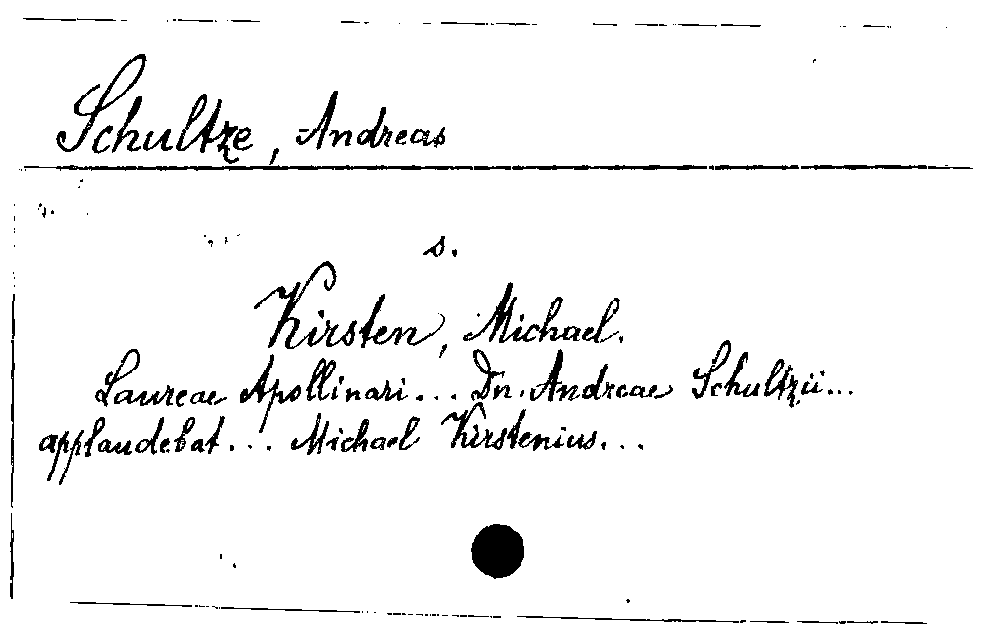 Schultze, Andreas
s.
Kirsten, Michael.
Laureae Apollinari... Dn. Andreae Schultzii...
applaudebat... Michael Kirstenius...